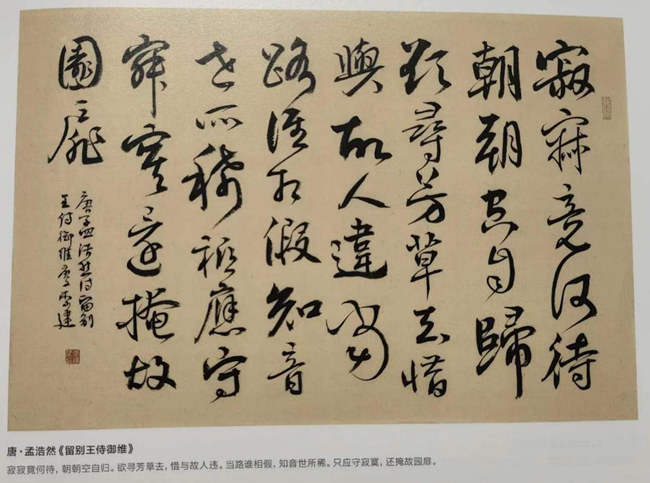 寂寂竟何待
朝朝空自歸
欲尋芳草去惜
與故人違當
路誰相假知音
世所稀祗應守
寂寞還掩故
園扉
唐孟浩然詩留別
王侍御維
唐·孟浩然《留别王侍御维》
寂寂竟何待,朝朝空自归。欲寻芳草去,惜与故人违。当路谁相假,知音世所稀。只应守寂寞,还掩故园扉。